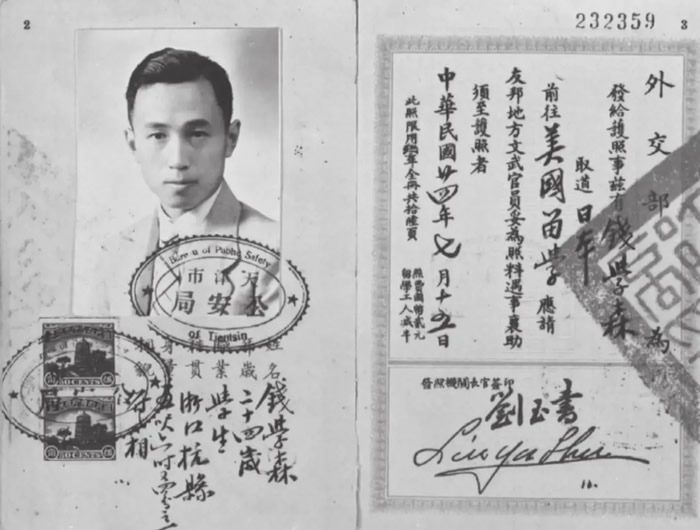 2
Bureau of Public Safety
天津市
公安局
of Tientsin
姓名 錢學森
年歲 二十四歲
職業 學生
籍貫 浙江杭縣
身量 五呎六吋
相貌 附相
50 CENTS
50 CENTS
232359
3
外交部為
發給護照事茲有錢學森
取道日本
前往美國留學應請
友邦地方文武官員妥為照料遇事襄助
須至護照者
中華民國廿四年七月十五日
此照限用叁年全冊共拾陸頁
照費國幣貳元
留學工人減半
發照機關長官簽印
劉玉書
Liu Yu Shu